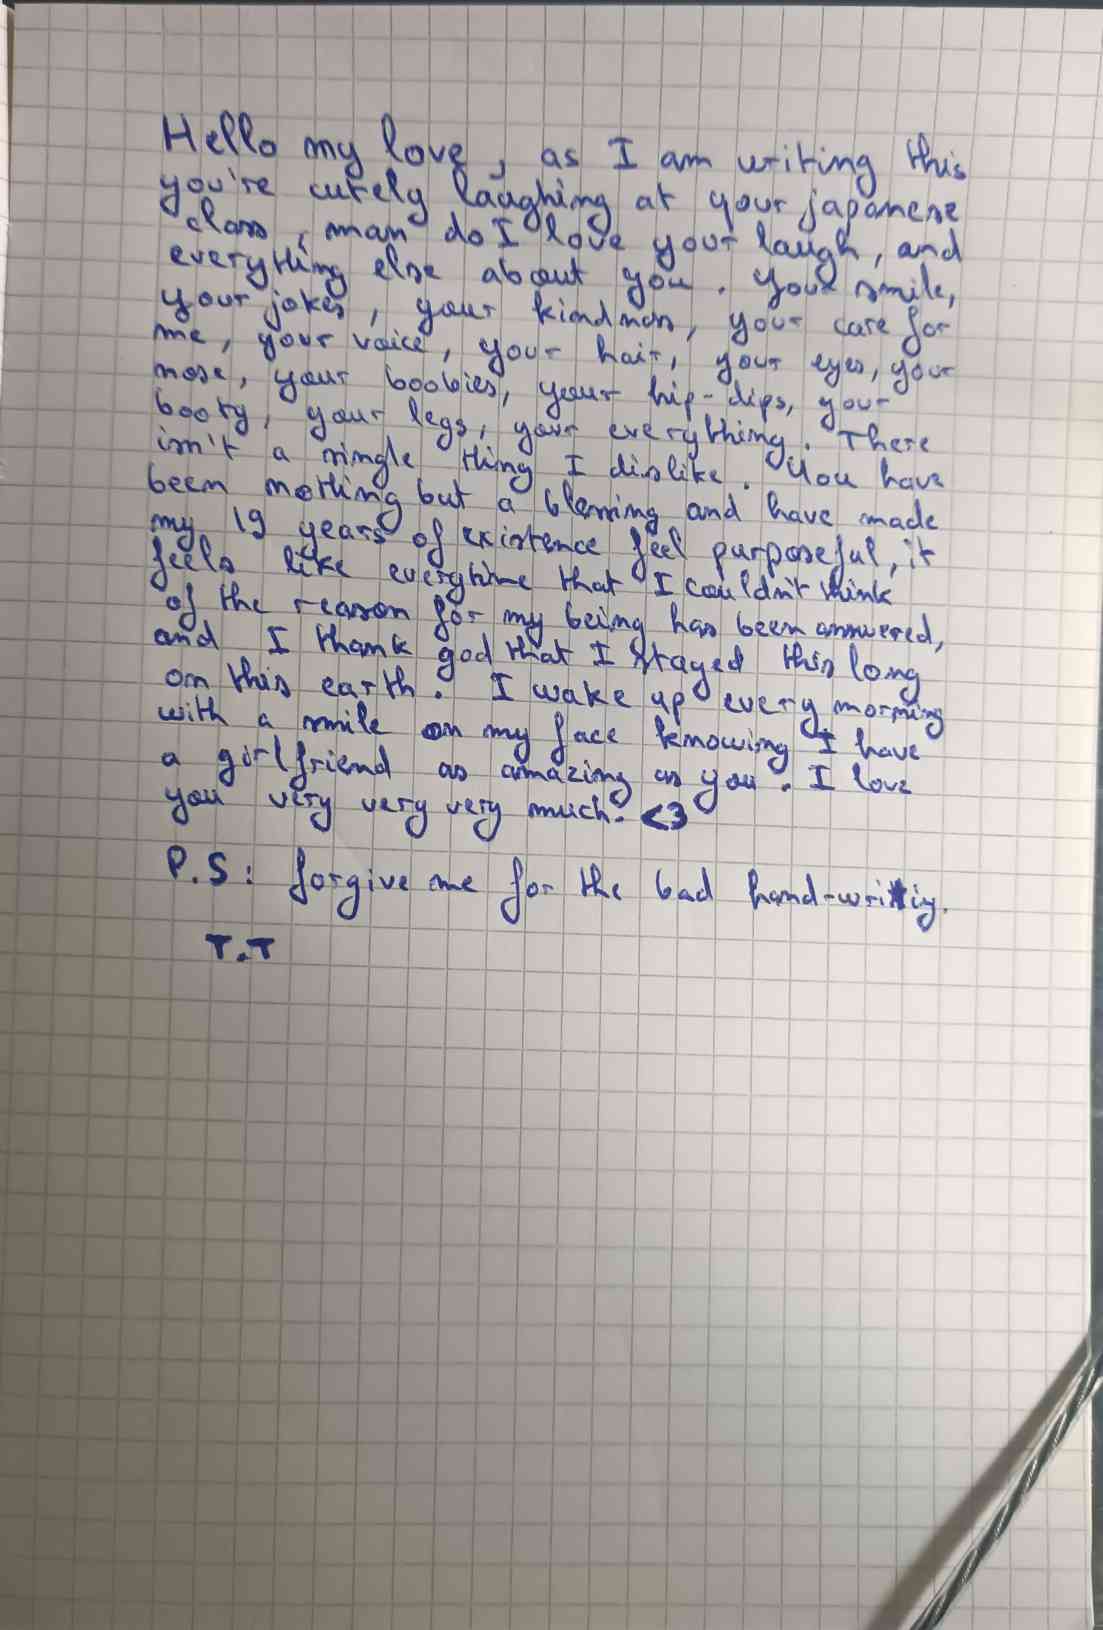 Hello my love, as I am writing this
you're cutely laughing at your japanese
class, man do I love your laugh, and
everything else about you. Your smile,
your jokes, your kindness, your care for
me, your voice, your hair, your eyes, your
nose, your boobies, your hip-dips, your
booty, your legs, your everything. There
isn't a single thing I dislike. You have
been nothing but a blessing and have made
my 19 years of existence feel purposeful, it
feels like everytime that I couldn't think
of the reason for my being has been answered,
and I thank god that I stayed this long
on this earth. I wake up every morning
with a smile on my face knowing I have
a girlfriend as amazing as you. I love
you very very very much. <3
P.S: forgive me for the bad hand-writing.
T.T